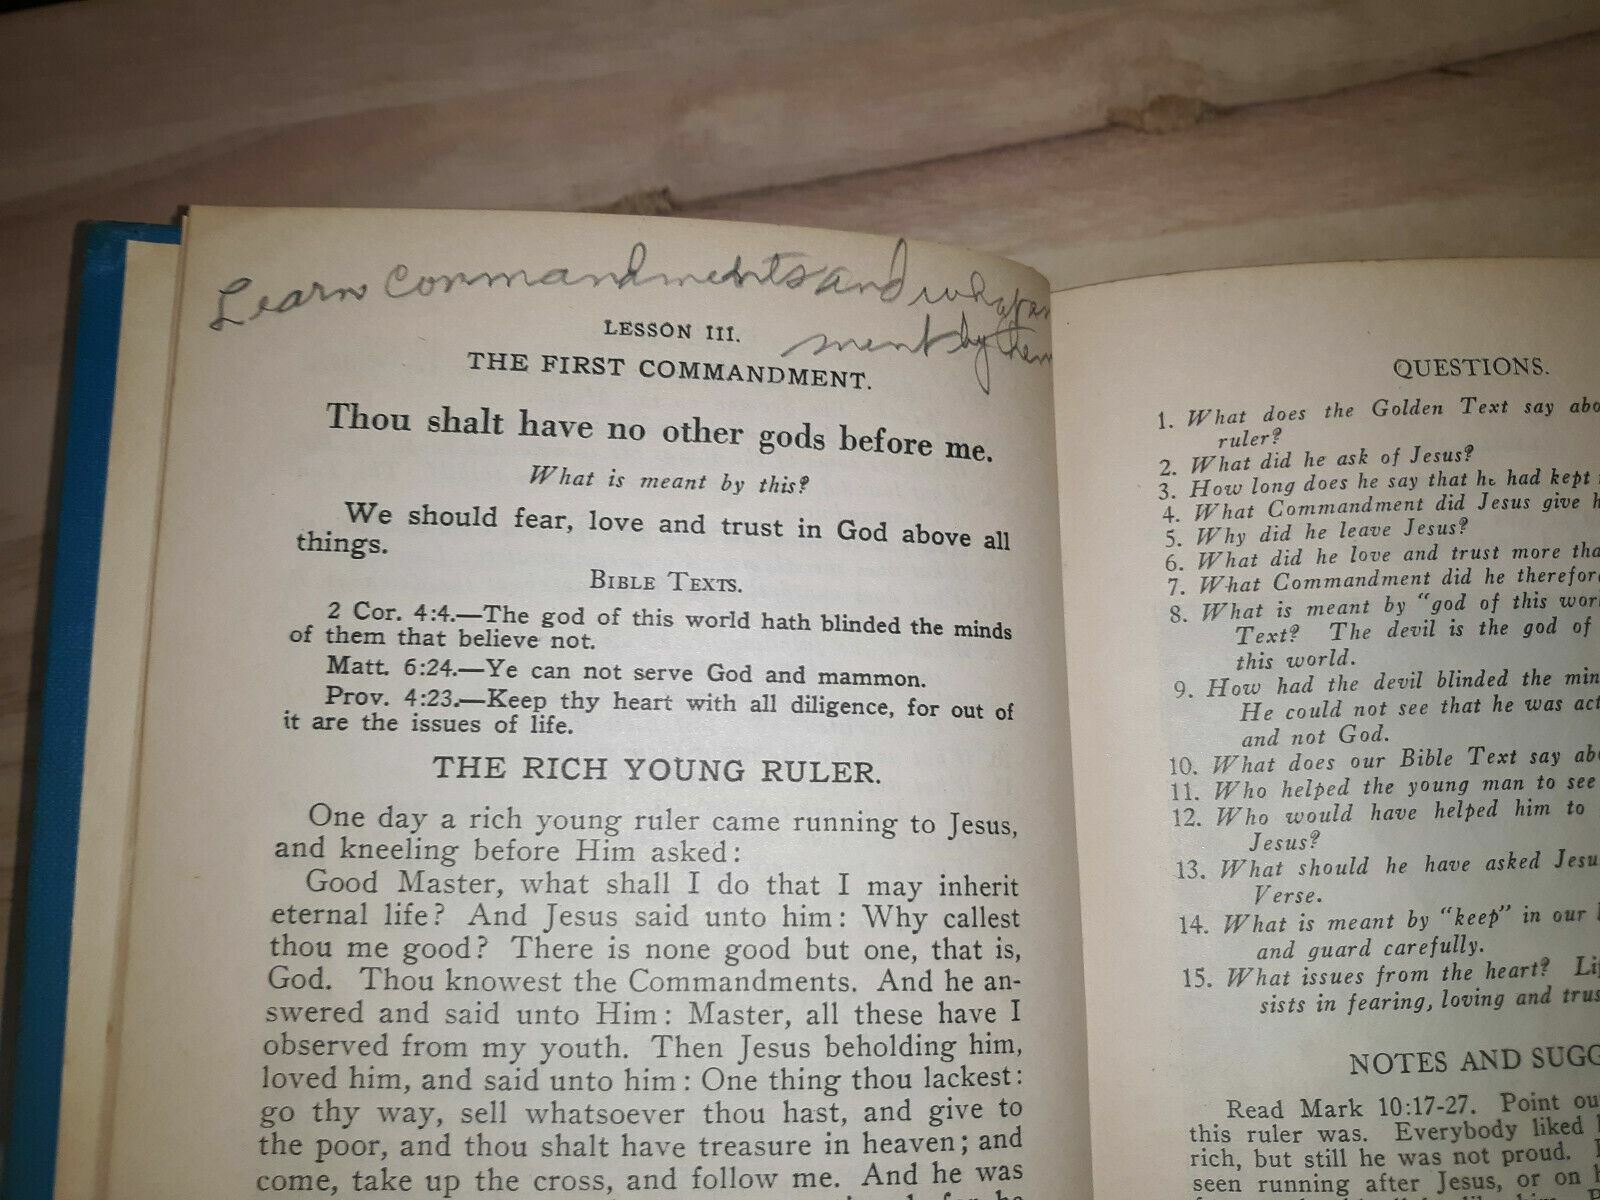 Learn Commandments and what
ment by them
LESSON III.
THE FIRST COMMANDMENT.
Thou shalt have no other gods before me.
What is meant by this?
We should fear, love and trust in God above all
things.
BIBLE TEXTS.
2 Cor. 4:4.—The god of this world hath blinded the minds
of them that believe not.
Matt. 6:24.—Ye can not serve God and mammon.
Prov. 4:23.—Keep thy heart with all diligence, for out of
it are the issues of life.
THE RICH YOUNG RULER.
One day a rich young ruler came running to Jesus,
and kneeling before Him asked:
Good Master, what shall I do that I may inherit
eternal life? And Jesus said unto him: Why callest
thou me good? There is none good but one, that is,
God. Thou knowest the Commandments. And he an-
swered and said unto Him: Master, all these have I
observed from my youth. Then Jesus beholding him,
loved him, and said unto him: One thing thou lackest:
go thy way, sell whatsoever thou hast, and give to
the poor, and thou shalt have treasure in heaven; and
come, take up the cross, and follow me. And he was
QUESTIONS.
1. What does the Golden Text say
ruler?
2. What did he ask of Jesus?
3. How long does he say that he had kept
4. What Commandment did Jesus give
5. Why did he leave Jesus?
6. What did he love and trust more
7. What Commandment did he
8. What is meant by "god of this
Text? The devil is the god of
this world.
9. How had the devil blinded the
He could not see that he was
and not God.
10. What does our Bible Text say
11. Who helped the young man to see
12. Who would have helped him to
Jesus?
13. What should he have asked
Verse.
14. What is meant by "keep" in our
and guard carefully.
15. What issues from the heart?
sists in fearing, loving and
NOTES AND
Read Mark 10:17-27. Point
this ruler was. Everybody liked
rich, but still he was not proud.
seen running after Jesus, or on